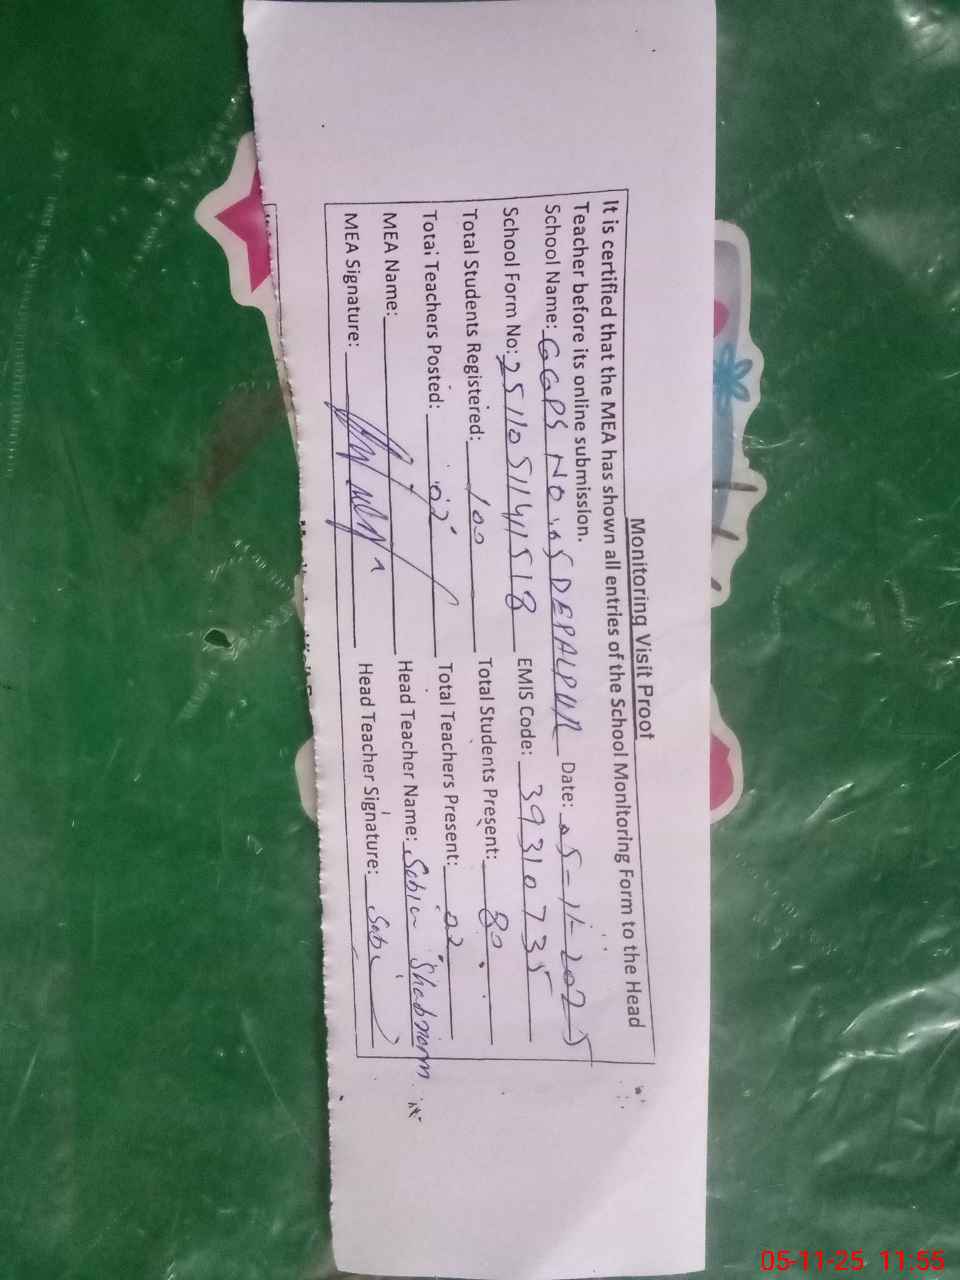 Monitoring Visit Proof
It is certified that the MEA has shown all entries of the School Monitoring Form to the Head
Teacher before its online submission.
School Name: GGPS NO .05 DEPALPUR Date: 05-11-2025
School Form No: 251105114151 8 EMIS Code: 39310735
Total Students Registered: 100 Total Students Present: 80
Total Teachers Posted: 02 Total Teachers Present: 02
MEA Name: Head Teacher Name: Sobia Shabnam
MEA Signature: Head Teacher Signature: Sobi
05-11-25 11:55